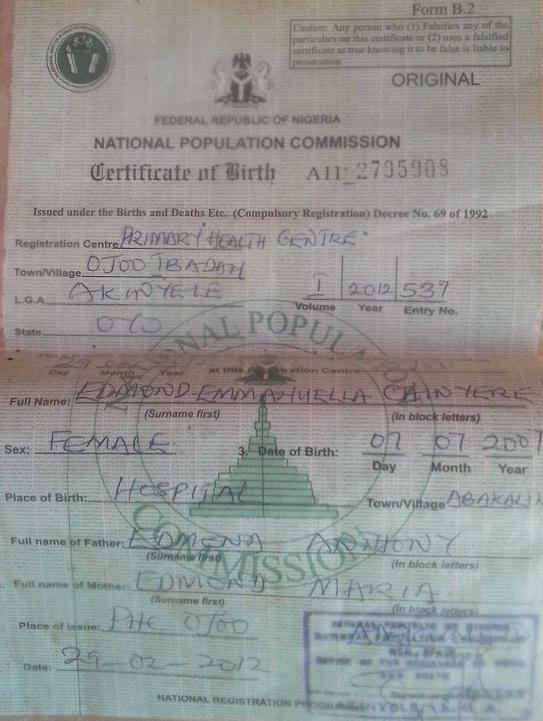 Form B.2
Caution: Any person who (1) Falsifies any of the
particulars on this certificate or (2) uses a falsified
certificate as true knowing it to be false is liable to
prosecution
ORIGINAL
FEDERAL REPUBLIC OF NIGERIA
NATIONAL POPULATION COMMISSION
Certificate of Birth A11 2795908
Issued under the Births and Deaths Etc. (Compulsory Registration) Decree No. 69 of 1992
Registration Centre PRIMARY HEALTH CENTRE
Town/Village OJOO IBADAN
L.G.A. AKINYELE I 2012 537
Volume Year Entry No.
State OYO
Day Month Year at this Registration Centre
Full Name: EDMOND EMMANUELLA CHINYERE
(Surname first) (In block letters)
Sex: FEMALE 3. Date of Birth: 07 07 2007
Day Month Year
Place of Birth: HOSPITAL Town/Village ABAKALIK
Full name of Father: EDMOND ANTHONY
(Surname first) (In block letters)
Full name of Mother: EDMOND MARIA
(Surname first) (In block letters)
Place of issue: PHC OJOO
Date: 29-02-2012
NATIONAL REGISTRATION
NATIONAL POPULATION
COMMISSION